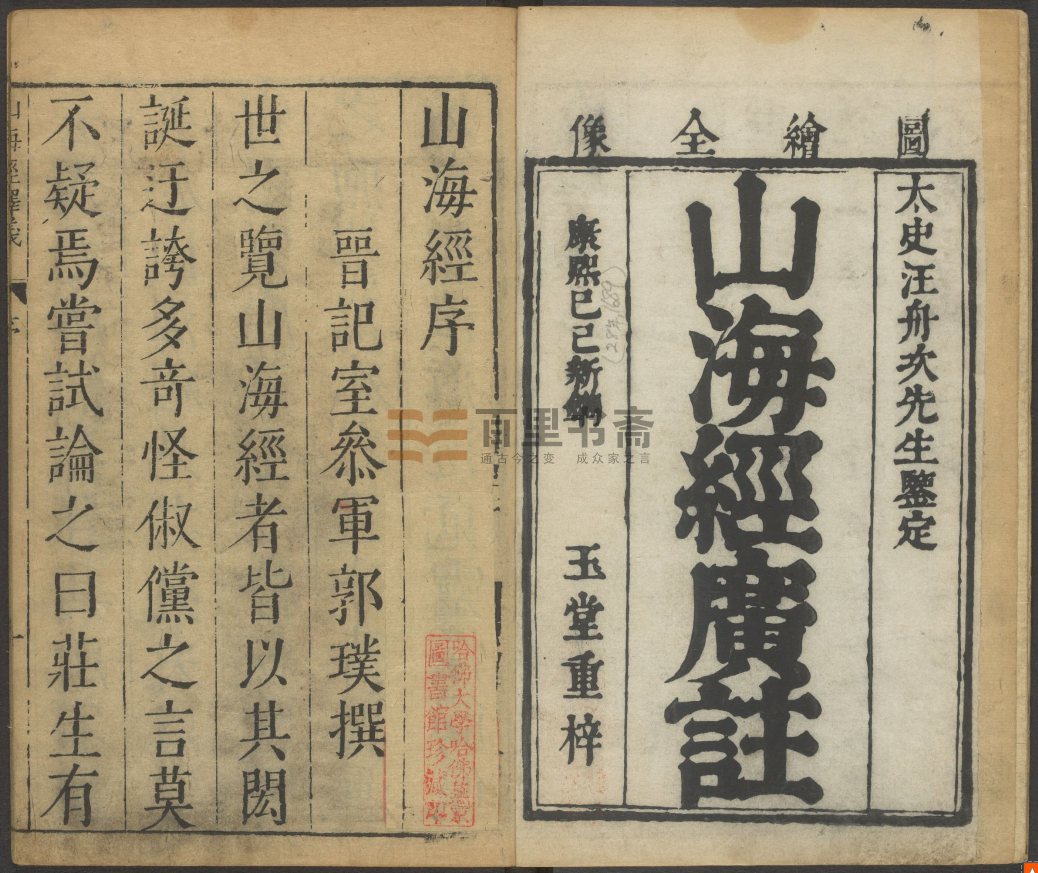 圖繪全像
太史汪舟次先生鑒定
山海經廣註
康熙己巳新鐫
(28年, 1689)
玉堂重梓
山海經序
晉記室叅軍郭璞撰
世之覽山海經者皆以其閎
誕迂誇多奇怪俶儻之言莫
不疑焉嘗試論之曰莊生有
山海經釋義
序
一
哈佛大學哈佛燕京
圖書館珍藏印
百里书斋
通古今之变 成众家之言